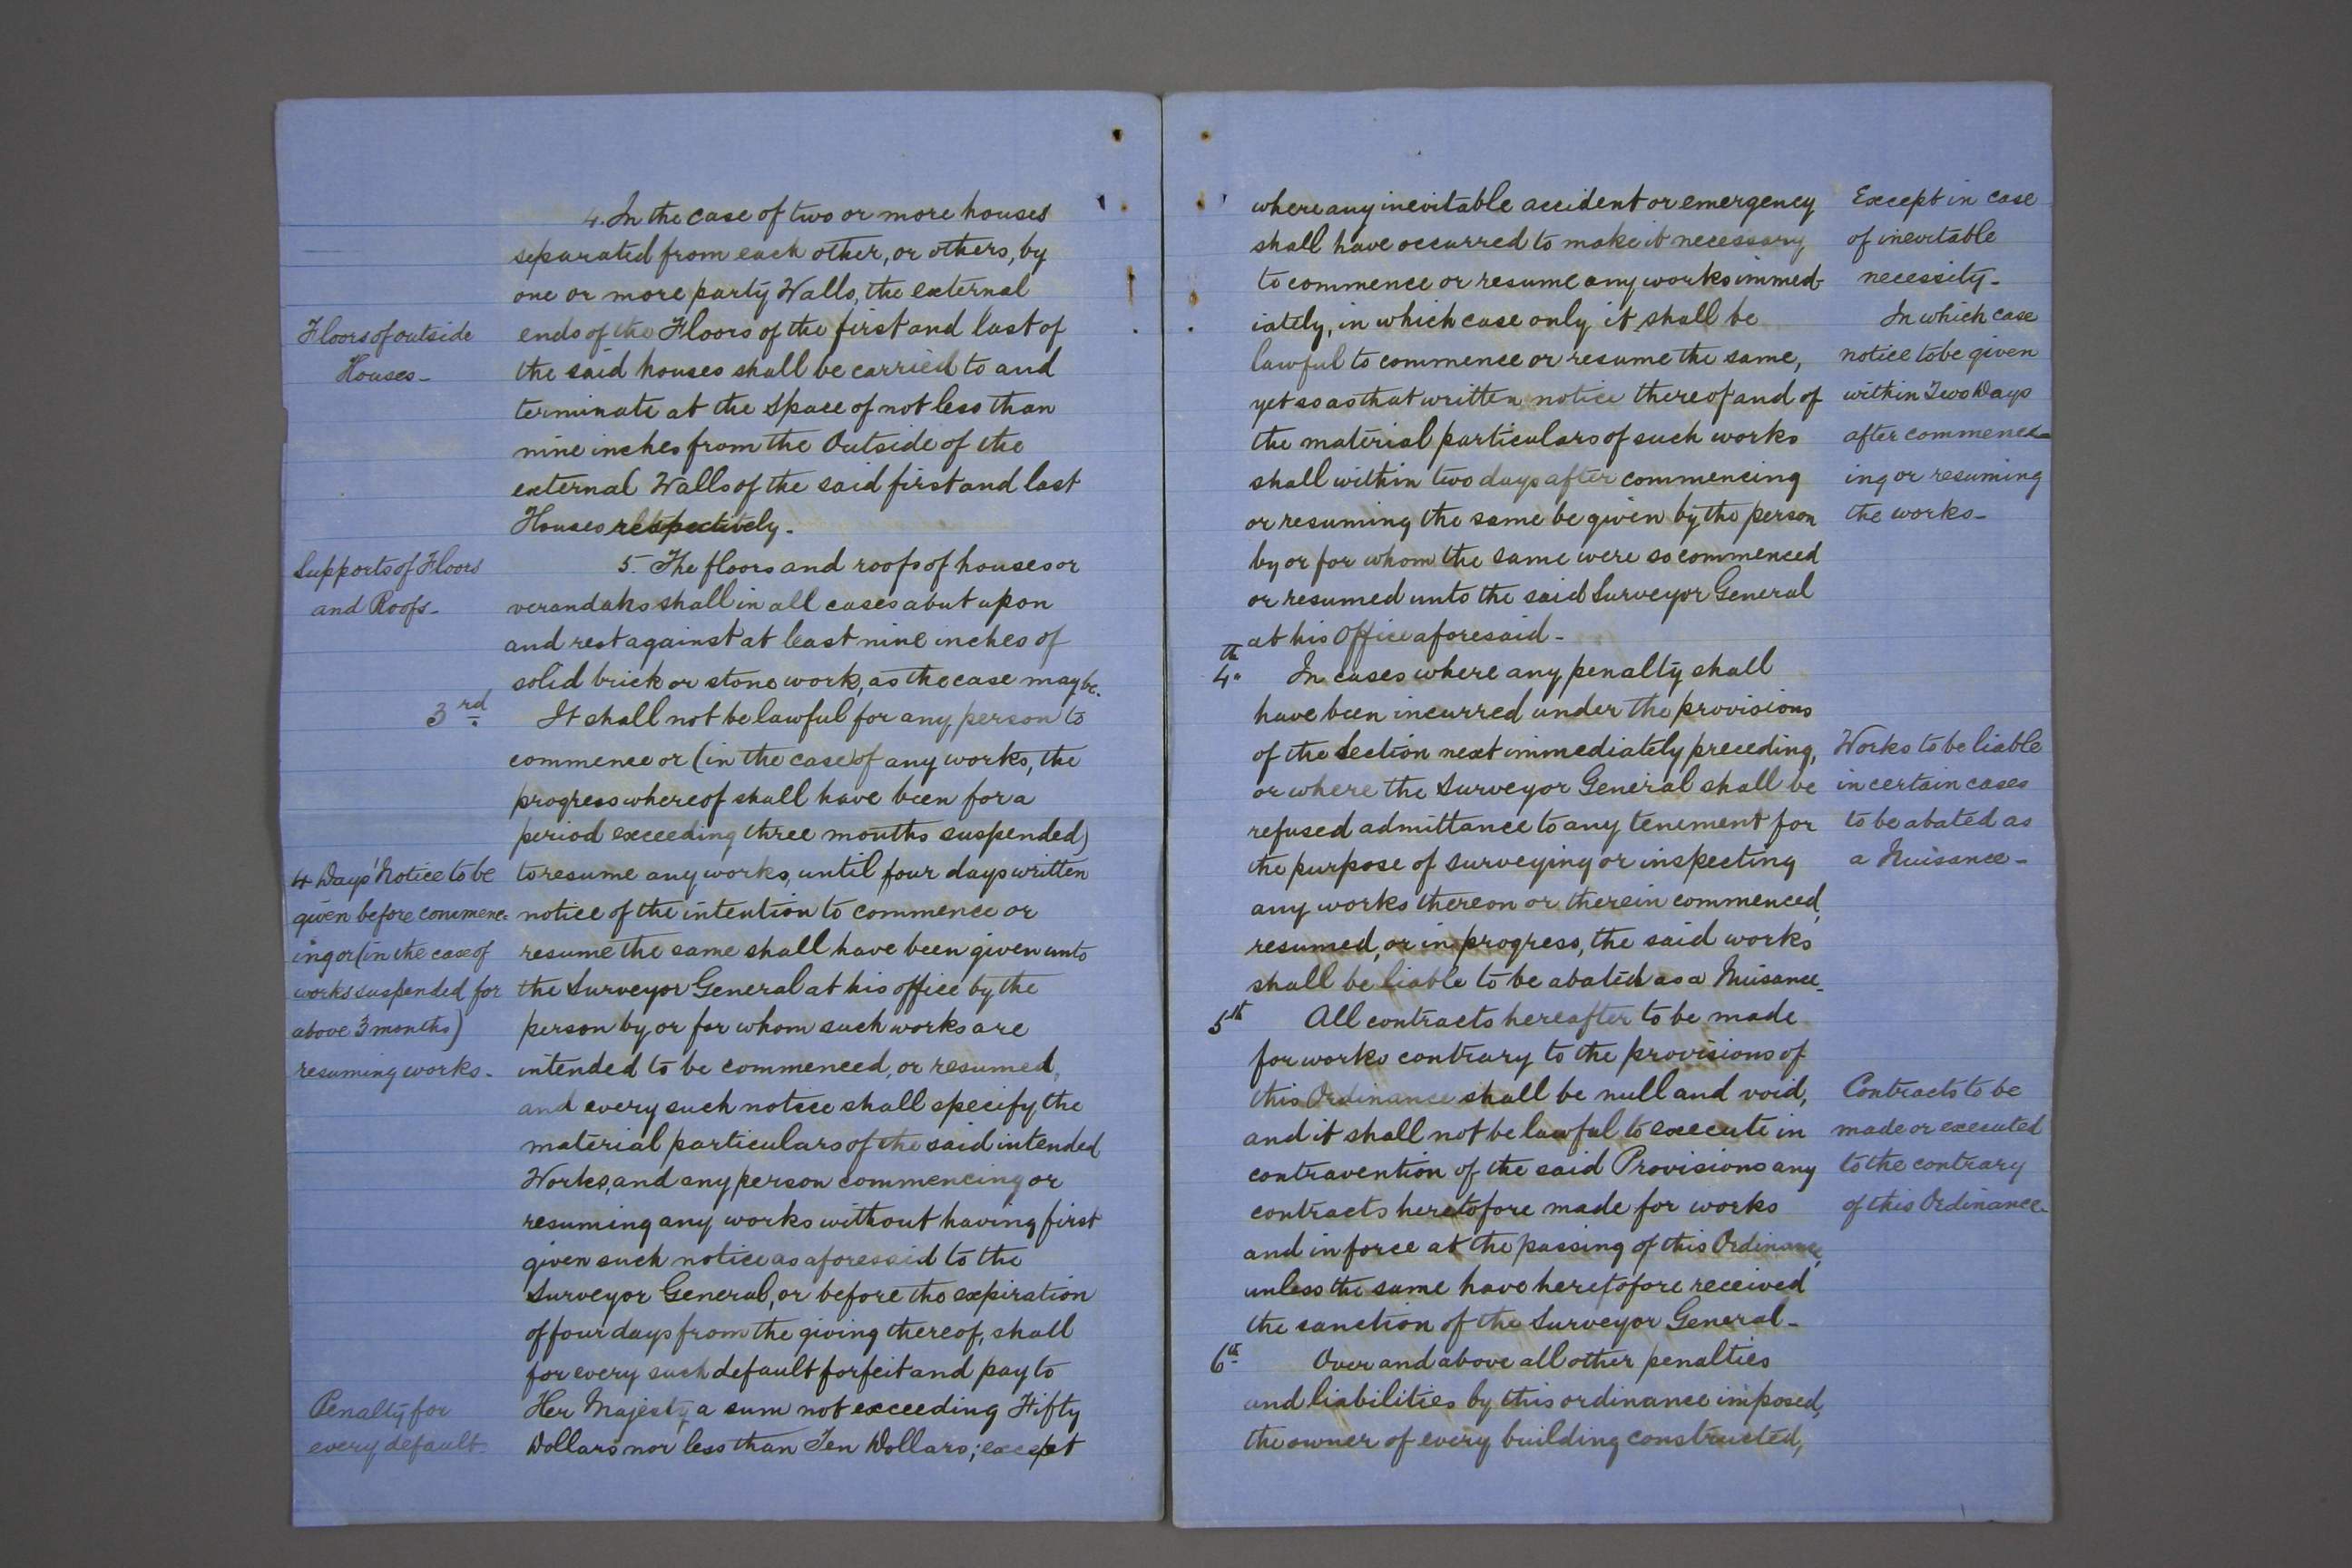 4. In the case of two or more houses
separated from each other, or others, by
one or more party Walls, the external
Floors of outside
Houses_
ends of the Floors of the first and last of
the said houses shall be carried to and
terminate at the Space of not less than
nine inches from the Outside of the
external Walls of the said first and last
Houses respectively.
Supports of Floors
and Roofs_
5. The floors and roofs of houses or
verandahs shall in all cases abut upon
and rest against at least nine inches of
solid brick or stone work, as the case may be.
3rd It shall not be lawful for any person to
commence or (in the case of any works, the
progress whereof shall have been for a
period exceeding three months suspended)
4 Days' Notice to be
given before commenc=
ing or (in the case of
works suspended for
above 3 months)
resuming works_
to resume any works, until four days written
notice of the intention to commence or
resume the same shall have been given unto
the Surveyor General at his office by the
person by or for whom such works are
intended to be commenced, or resumed,
and every such notice shall specify the
material particulars of the said intended
Works, and any person commencing or
resuming any works without having first
given such notice as aforesaid to the
Surveyor General, or before the expiration
of four days from the giving thereof, shall
for every such default forfeit and pay to
Penalty for
every default_
Her Majesty a sum not exceeding Fifty
Dollars nor less than Ten Dollars; except
where any inevitable accident or emergency
shall have occurred to make it necessary
to commence or resume any works immed-
iately, in which case only it shall be
lawful to commence or resume the same,
yet so as that written notice thereof and of
the material particulars of such works
shall within two days after commencing
or resuming the same be given by the person
by or for whom the same were so commenced
or resumed unto the said Surveyor General
at his Office aforesaid_
Except in case
of inevitable
necessity_
In which case
notice to be given
within Two Days
after commenc-
ing or resuming
the works_
4th In cases where any penalty shall
have been incurred under the provisions
of the Section next immediately preceding,
or where the Surveyor General shall be
refused admittance to any tenement for
the purpose of surveying or inspecting
any works thereon or therein commenced,
resumed, or in progress, the said works
shall be liable to be abated as a Nuisance_
Works to be liable
in certain cases
to be abated as
a Nuisance_
5th All contracts hereafter to be made
for works contrary to the provisions of
this Ordinance shall be null and void,
and it shall not be lawful to execute in
contravention of the said Provisions any
contracts heretofore made for works
and in force at the passing of this Ordinance,
unless the same have heretofore received
the sanction of the Surveyor General_
Contracts to be
made or executed
to the contrary
of this Ordinance_
6th Over and above all other penalties
and liabilities by this ordinance imposed,
the owner of every building constructed,